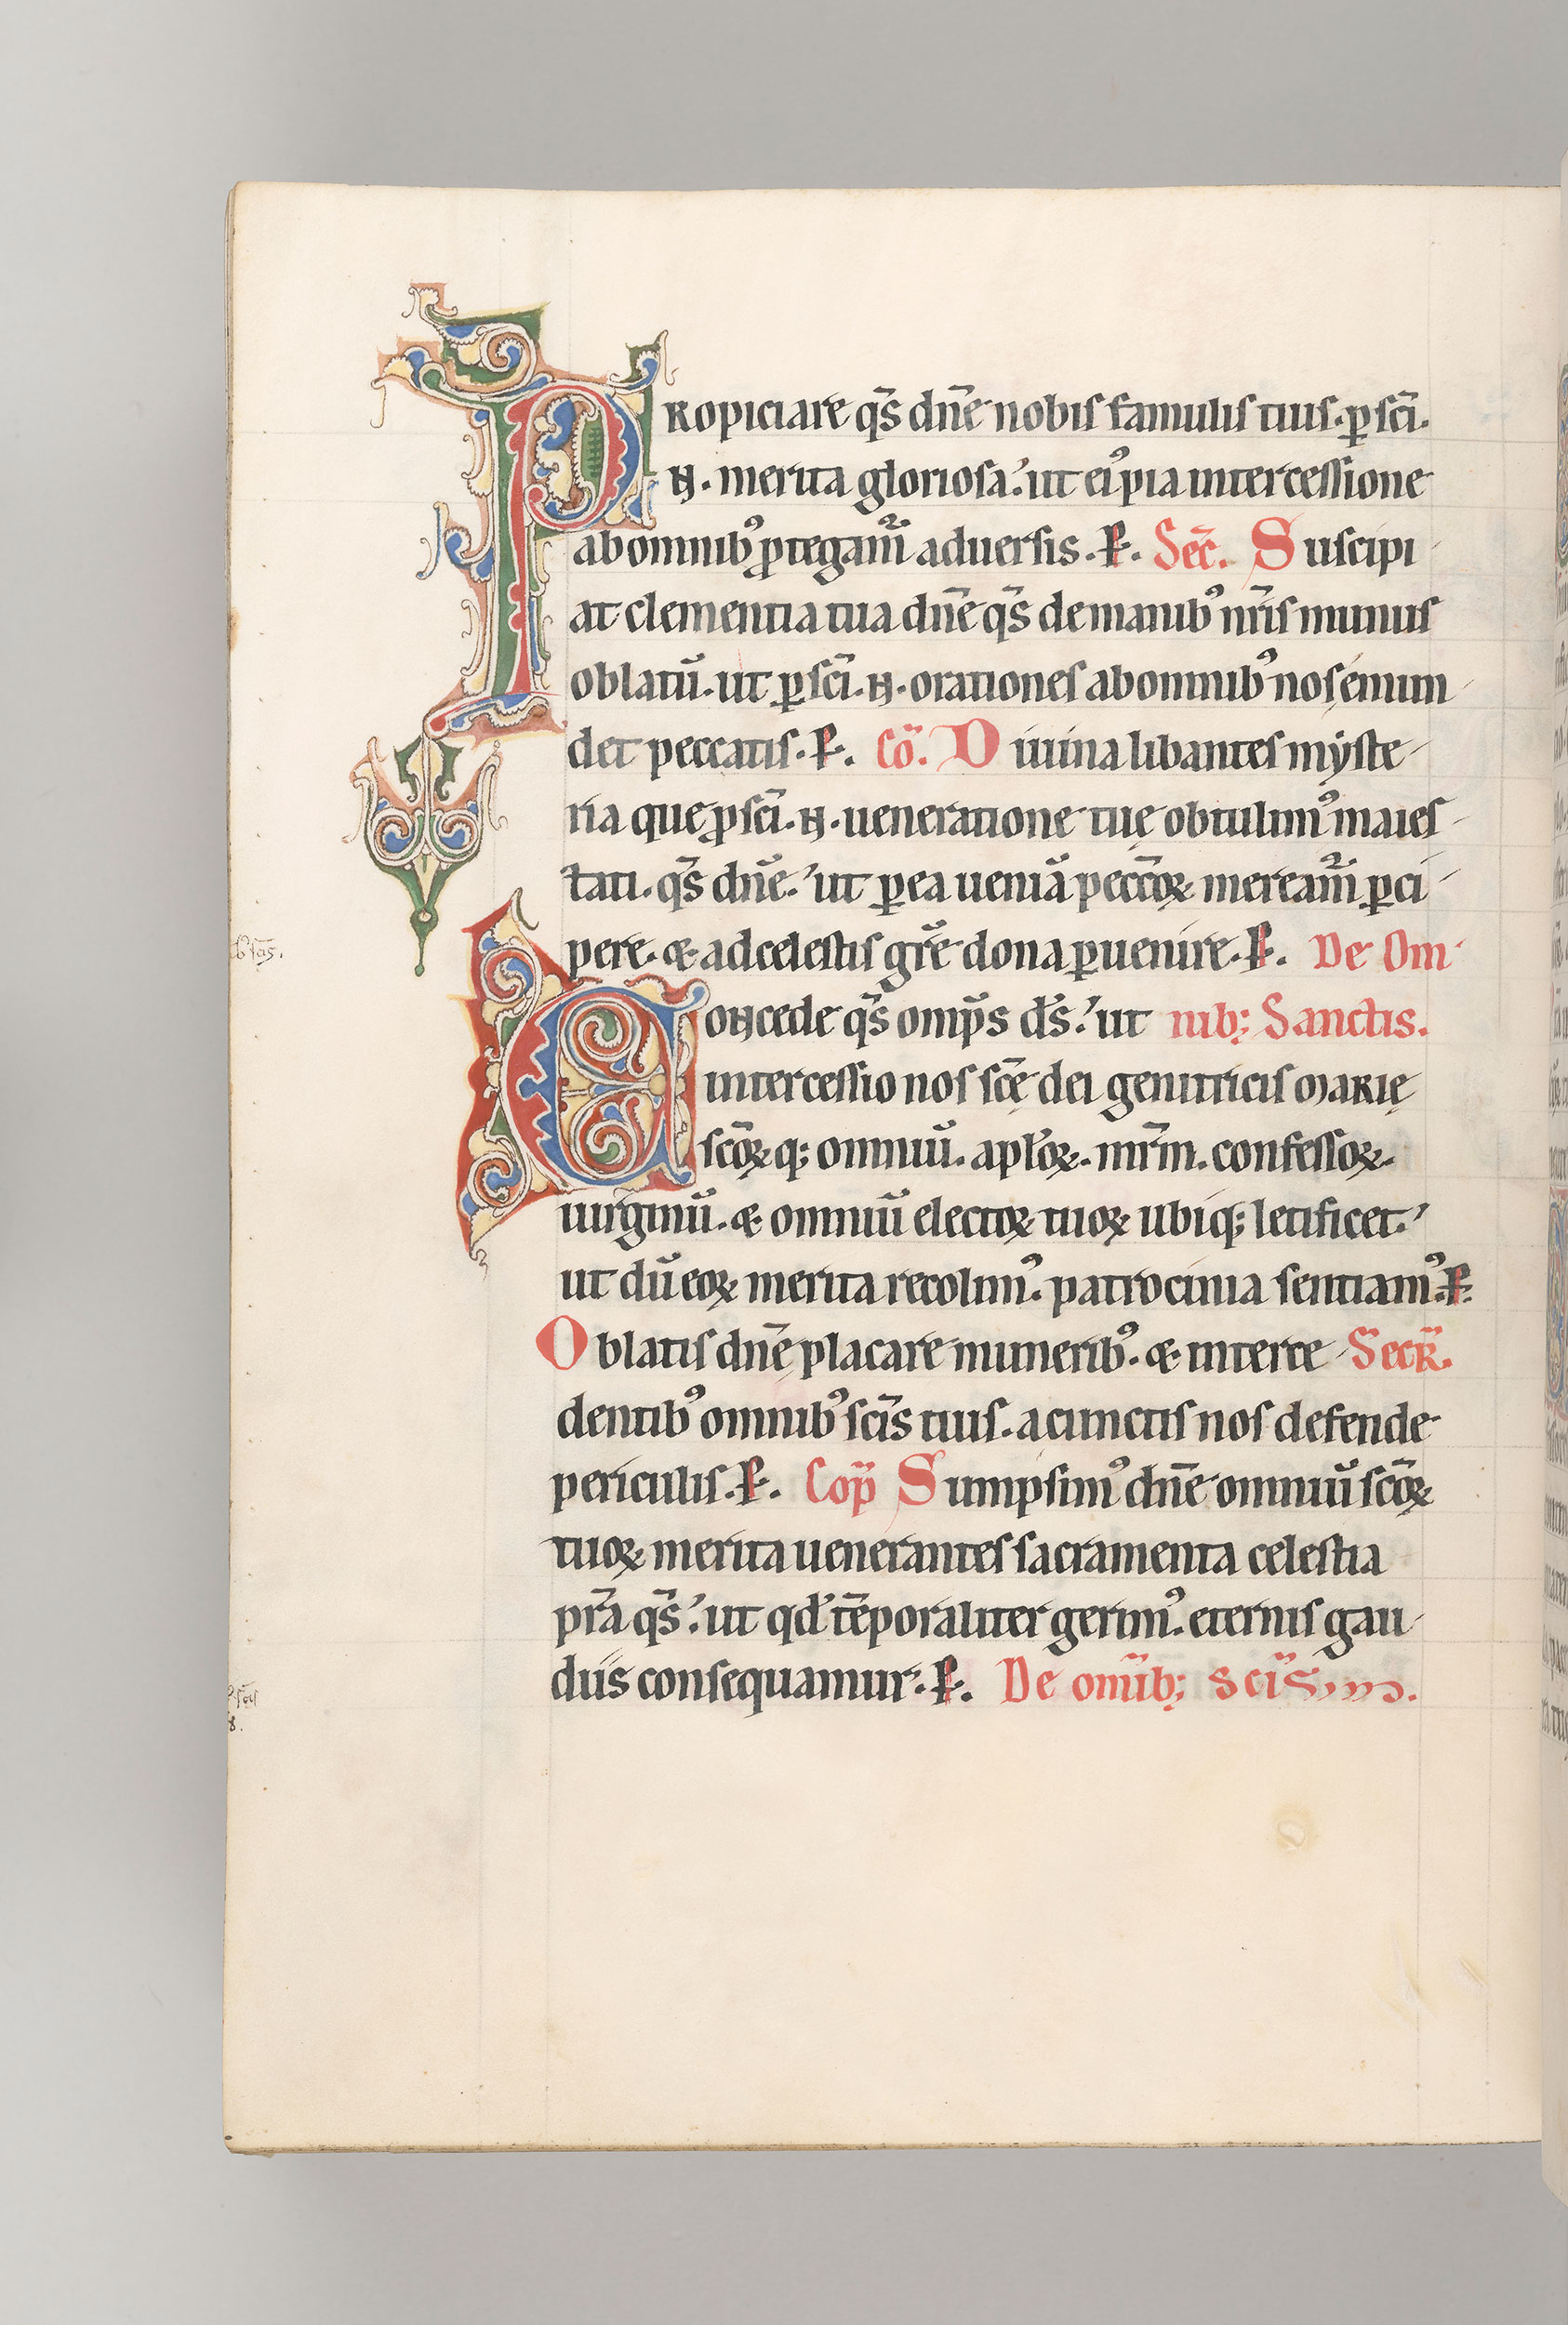 PRopiciare q̄s dn̄e nobis famulis tuis. ꝑ sc̄i.
N. merita gloriosa. ut eiꝰ pia intercessione
ab omnibꝰ ꝓtegam᷑ aduersis. P. Sec̄. Suscipi
at clementia tua dn̄e q̄s de manibꝰ nr̄is munus
oblatū. ut ꝑ sc̄i. N. orationes ab omnibꝰ nos emun
det peccatis. P. Cō. Diuina libantes myste
ria que ꝓ sc̄i. N. ueneratione tuę obtulimꝰ maies
tati. q̄s dn̄e. ut ꝑ ea ueniā pecc̄oꝝ meream᷑ ꝑci
pere. & ad celestis gr̄e dona ꝑuenire. P. De Om
CoNcede q̄s omp̄s d̄s. ut nib; Sanctis.
intercessio nos sc̄ę dei genitricis MARIĘ
sc̄oꝝ q; omniū. apl̄oꝝ. mr̄m. confessoꝝ.
uirginū. & omniū electoꝝ tuoꝝ ubiq; letificet.
ut dū eoꝝ merita recolimꝰ. patrocinia sentiamꝰ. P.
Oblatis dn̄e placare muneribꝰ. & interce Secr̄.
dentibꝰ omnibꝰ sc̄is tuis. a cunctis nos defende
periculis. P. Cop̄ Sumpsimꝰ dn̄e omniū sc̄oꝝ
tuoꝝ merita uenerantes sacramenta celestia
pr̄a q̄s. ut qd̄ tēporaliter gerimꝰ. eternis gau
diis consequamur. P. De om̄ib; sc̄is